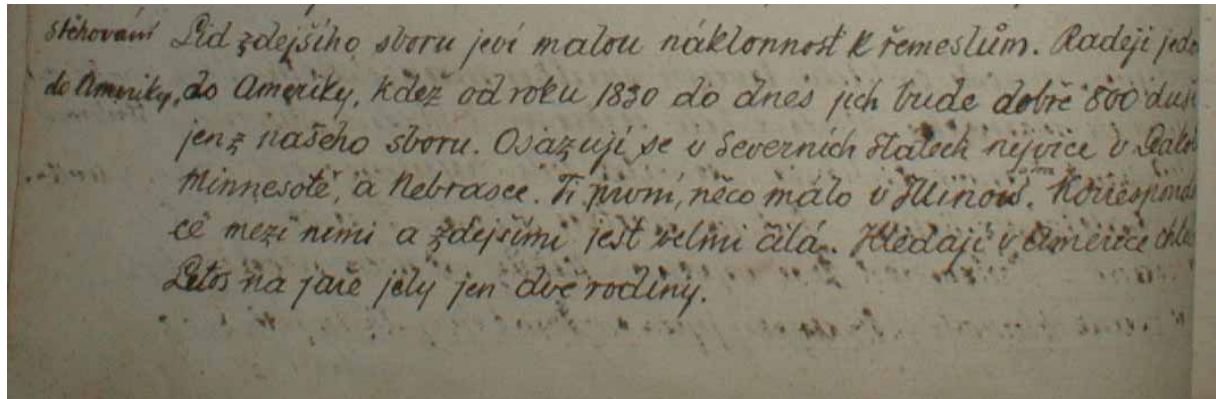 stěhování Lid zdejšího sboru jeví malou náklonnost k řemeslům. Raději jedo
do Ameriky, do Ameriky, kdež od roku 1830 do dnes jich bude dobře 800 duší
jen z našeho sboru. Osazují se v Severních státech nejvíce v Dakot
Minnesotě, a Nebrasce. Ti první, něco málo v Illinois. Korrespond
cé mezi nimi a zdejšími jest velmi čilá. Hledají v Americe chle
Letos na jaře jely jen dvě rodiny.